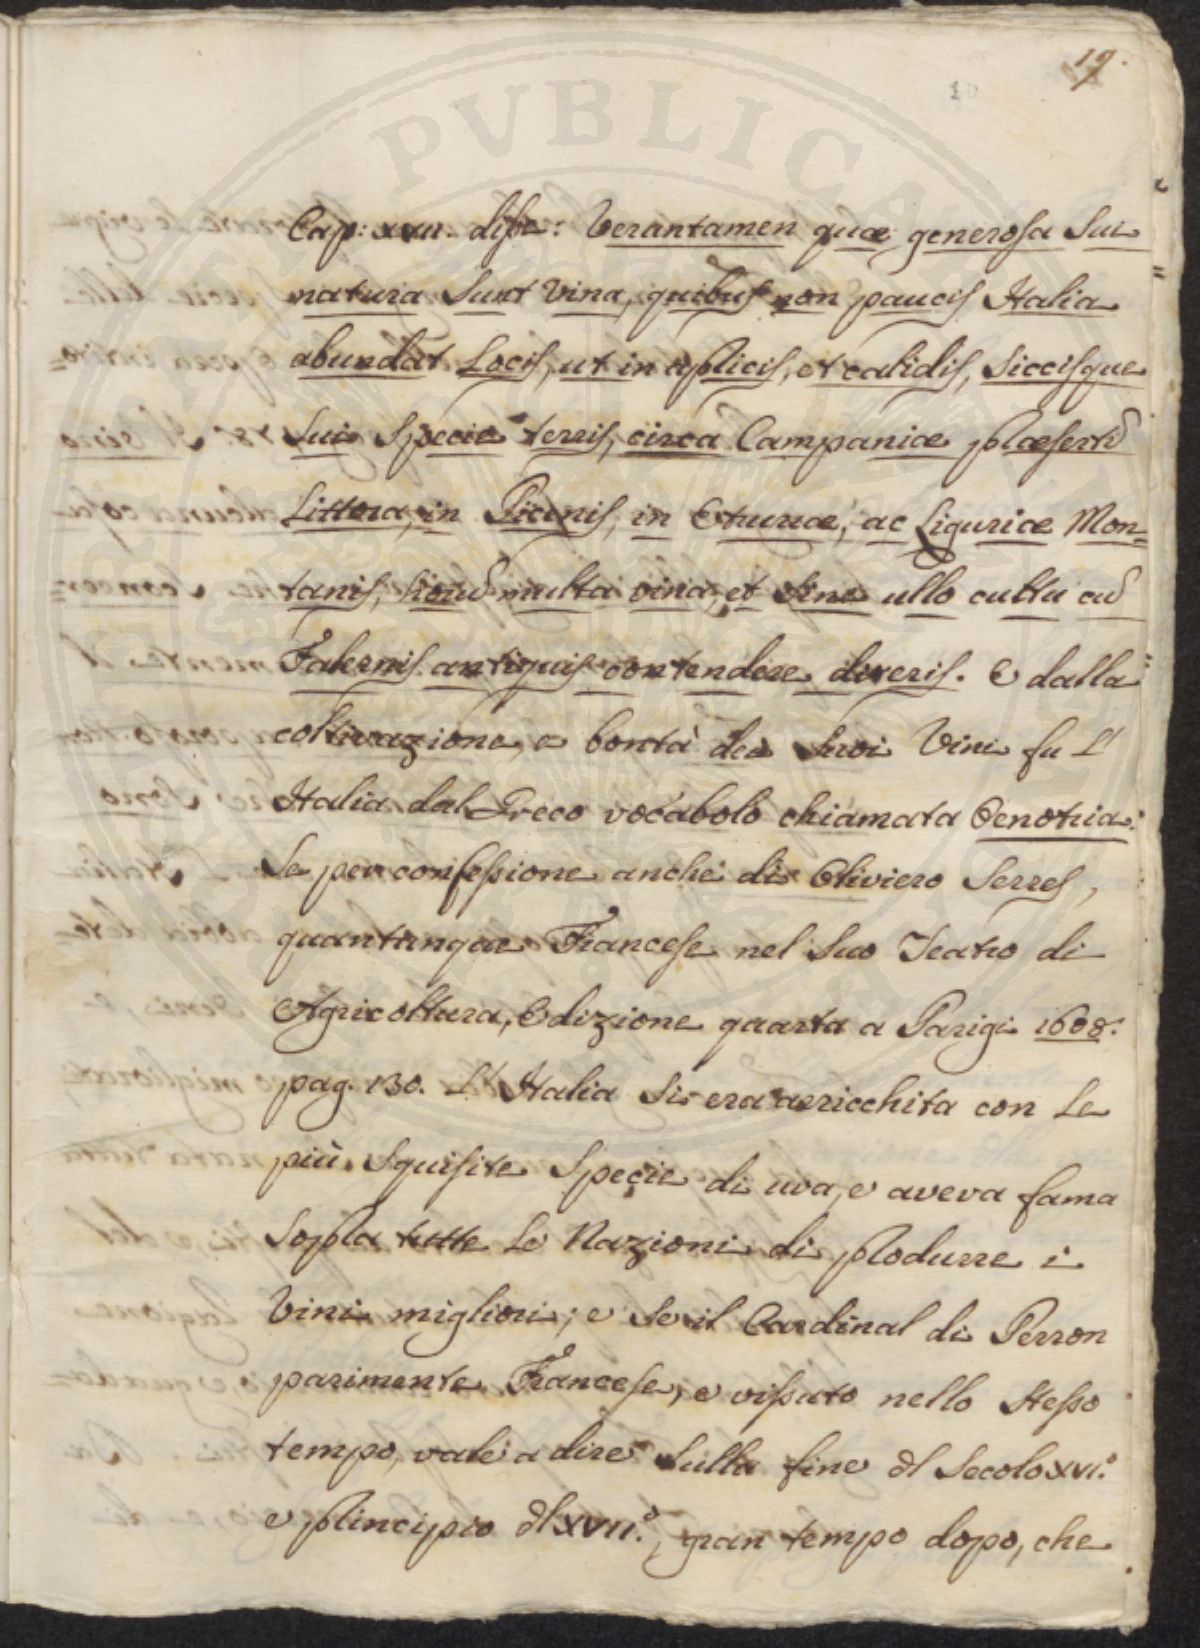 19.
10
PVBLICA
Cap: XXII. disse: Veruntamen quæ generosa sui
natura sunt vina, quibus non paucis Italia
abundat Locis, ut in apricis, et calidis, siccisque
sui specie terris, circa Campaniæ præsertĩ
Littora, in Picenis, in Etruriæ, ac Liguriæ Mon=
tanis, multa vina, et sine ullo cultu cũ
Falernis antiquis contendere dixeris. E dalla
coltivazione, e bontà dei suoi Vini fu L'
Italia dal Greco vocabolo chiamata Oenotria.
Se per confessione anche di Oliviero Serres,
quantunque Francese nel suo Teatro di
Agricoltura, Edizione quarta a Parigi 1608.
pag. 130. L'Italia si era arricchita con Le
più squisite specie di uva, e aveva fama
sopra tutte Le Nazioni di produrre i
Vini migliori; e se il Cardinal di Perron
parimente Francese, e vissuto nello stesso
tempo, vale a dire sulla fine dl Secolo XVI.º
e principio dl XVII.º, gran tempo dopo, che